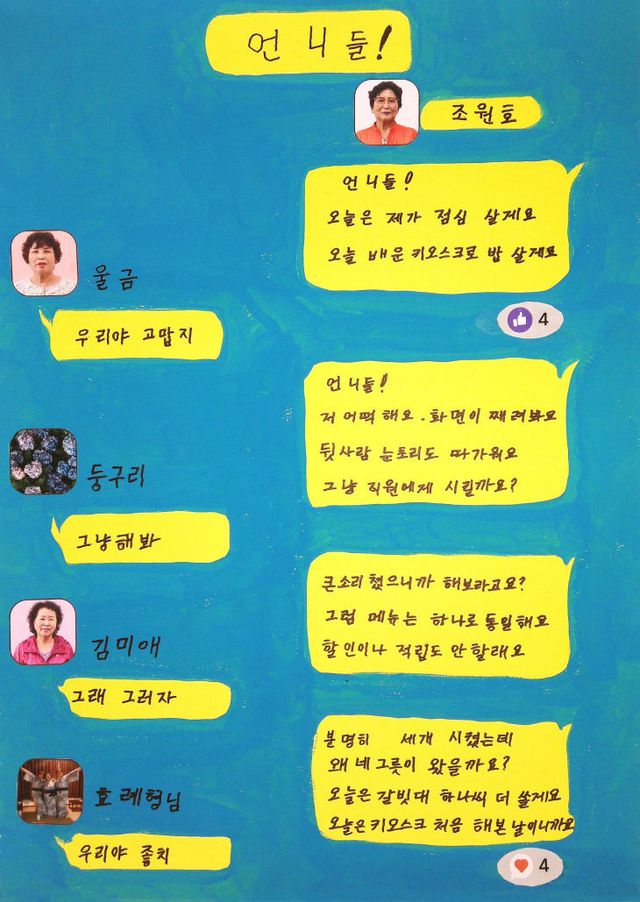 언니들!
조원호
언니들!
오늘은 제가 점심 살게요
오늘 배운 키오스크로 밥 살게요
4
울금
우리야 고맙지
언니들!
저 어떡해요. 화면이 째려봐요
뒷사람 눈초리도 따가워요
그냥 직원에게 시킬까요?
둥구리
그냥해봐
큰소리 쳤으니까 해보라고요?
그럼 메뉴는 하나로 통일해요
할인이나 적립도 안 할래요
김미애
그래 그러자
분명히 세개 시켰는데
왜 네 그릇이 왔을까요?
오늘은 갈빗대 하나씩 더 쏠게요
오늘은 키오스크 처음 해본 날이니까요
4
호례형님
우리야 좋치